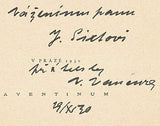 Váženému panu
J. Pixlovi
V PRAZE 1930
V. Vančura
AVENTINUM
29/XI 30